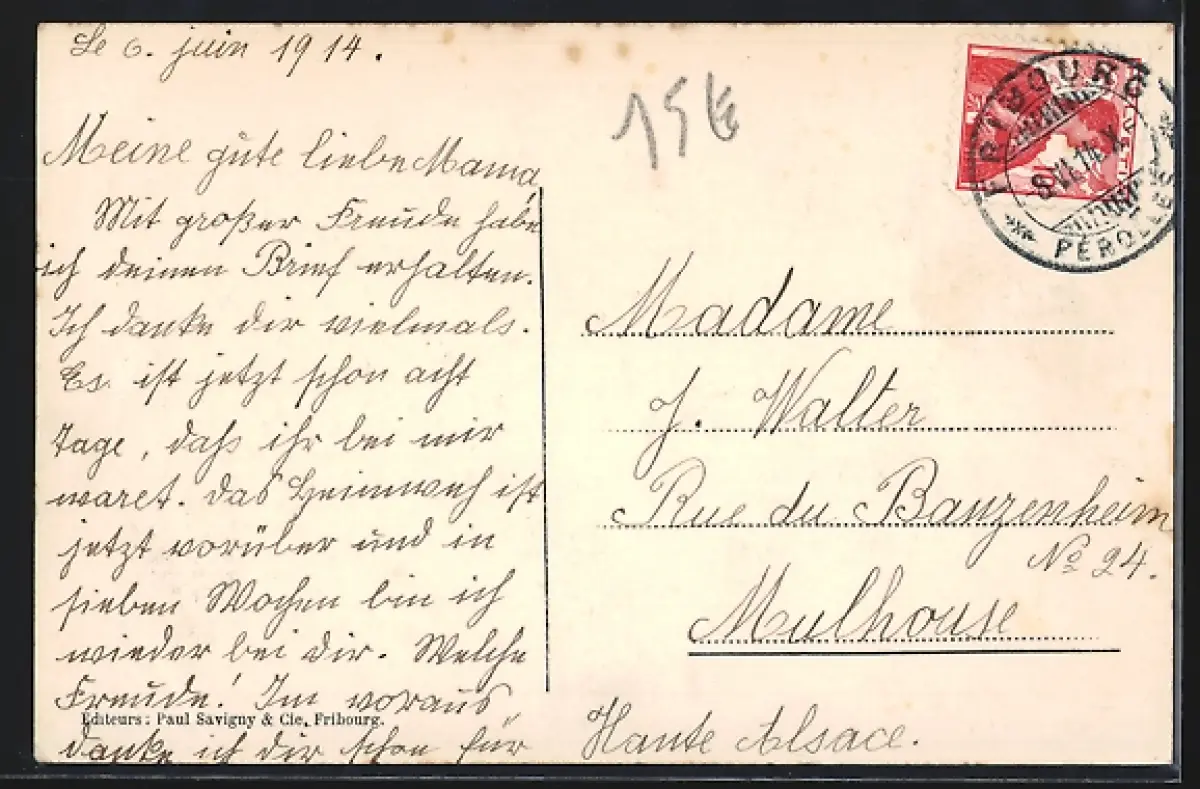 Le 6. juin 1914.
Meine gute liebe Mama
Mit großer Freude habe
ich deinen Brief erhalten.
Ich danke dir vielmals.
Es ist jetzt schon acht
Tage, daß ihr bei mir
waret. Das Heimweh ist
jetzt vorüber und in
sieben Wochen bin ich
wieder bei dir. Welche
Freude! Im voraus
danke ich dir schon für
Editeurs: Paul Savigny & Cie, Fribourg.
15€
FRIBOURG
PÉROLLES
Madame
J. Walter
Rue du Banzenheim
No 24.
Mulhouse
Haute Alsace.